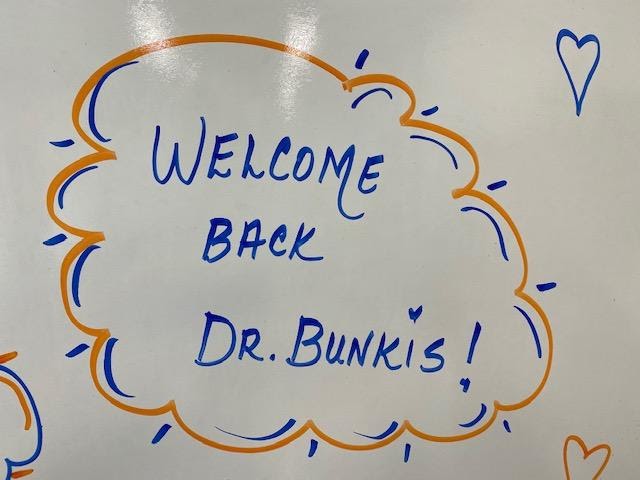 WELCOME
BACK
DR. BUNKiS!